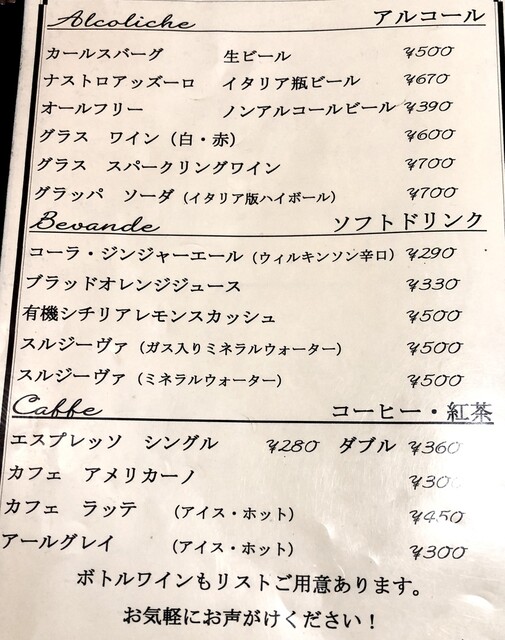 Alcoliche アルコール
カールスバーグ 生ビール ¥500
ナストロアッズーロ イタリア瓶ビール ¥670
オールフリー ノンアルコールビール ¥390
グラス ワイン（白・赤） ¥600
グラス スパークリングワイン ¥700
グラッパ ソーダ（イタリア版ハイボール） ¥700
Bevande ソフトドリンク
コーラ・ジンジャーエール（ウィルキンソン辛口） ¥290
ブラッドオレンジジュース ¥330
有機シチリアレモンスカッシュ ¥500
スルジーヴァ（ガス入りミネラルウォーター） ¥500
スルジーヴァ（ミネラルウォーター） ¥500
Caffe コーヒー・紅茶
エスプレッソ シングル ¥280 ダブル ¥360
カフェ アメリカーノ
カフェ ラッテ （アイス・ホット） ¥450
アールグレイ （アイス・ホット） ¥300
ボトルワインもリストご用意あります。
お気軽にお声がけください！